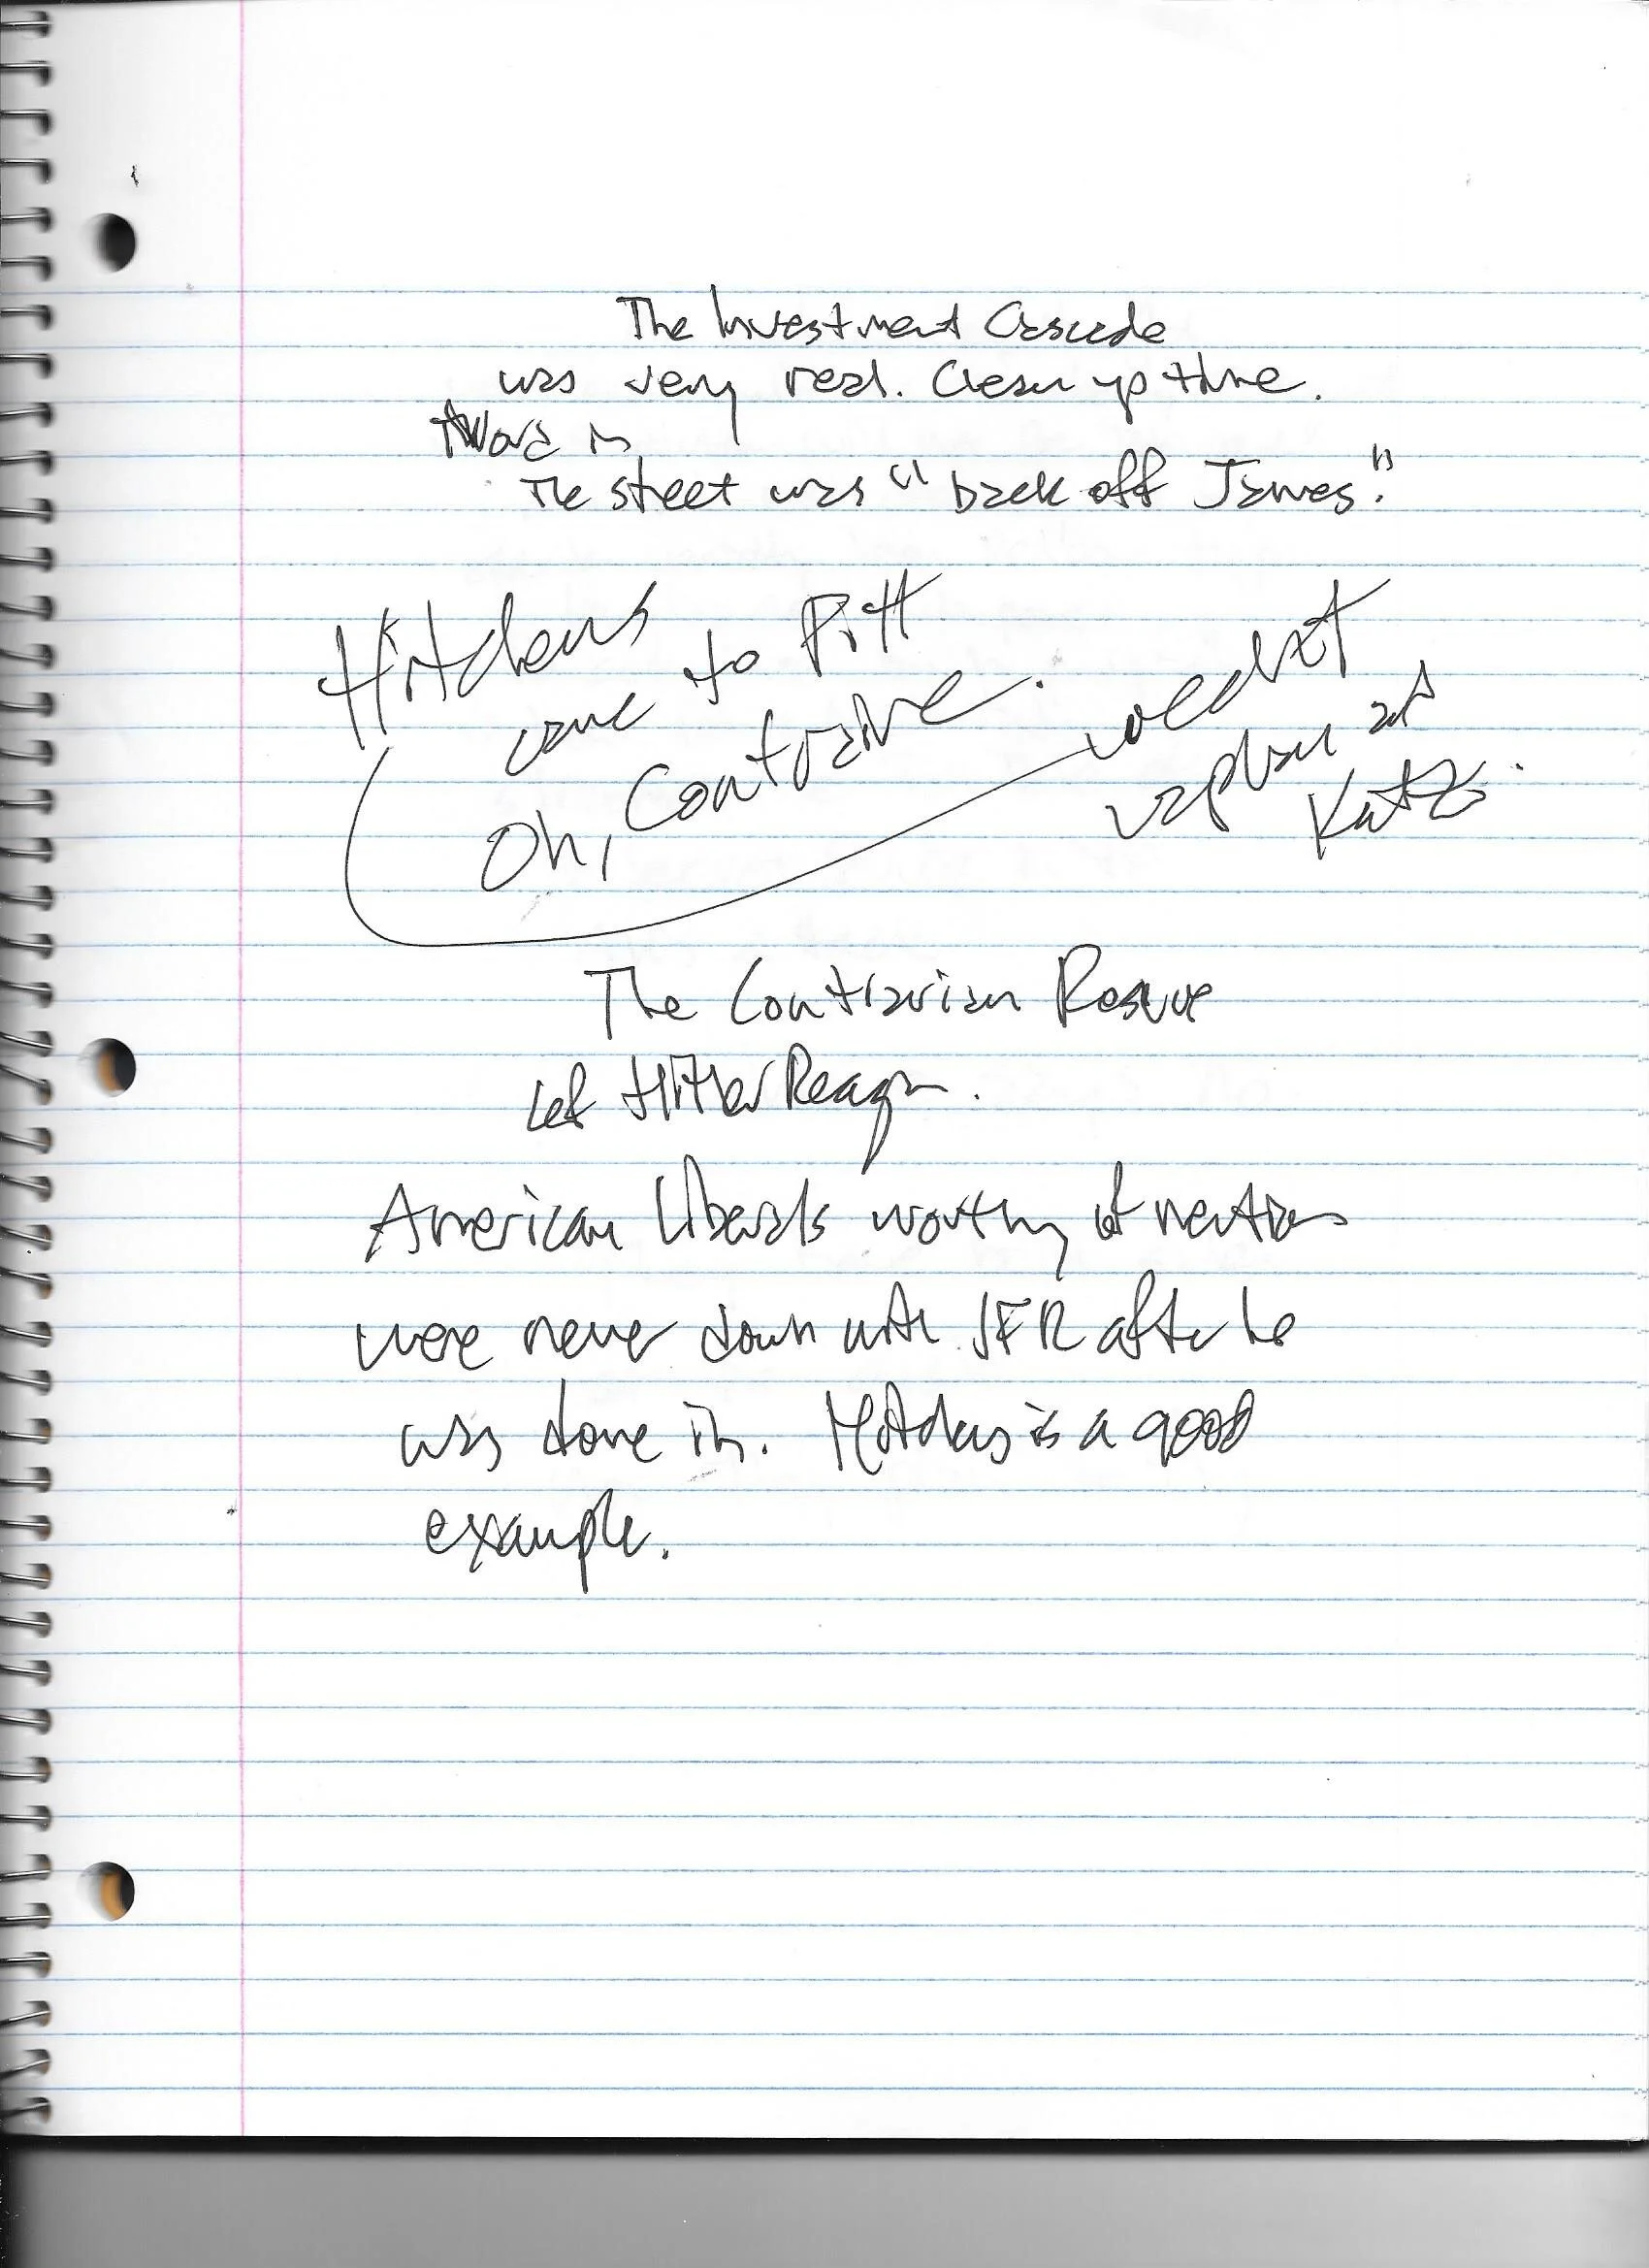 The Investment Cascade
was very real. Clean up time.
Word in
The street was "back off James."
Hitchens
came to Pitt
Oh, Contraire.
at
Katz.
The Contrarian Rescue
of Hitler Reagan.
American Liberals worthy of mention
were never down with JFK after he
was done in. Hitchens is a good
example.